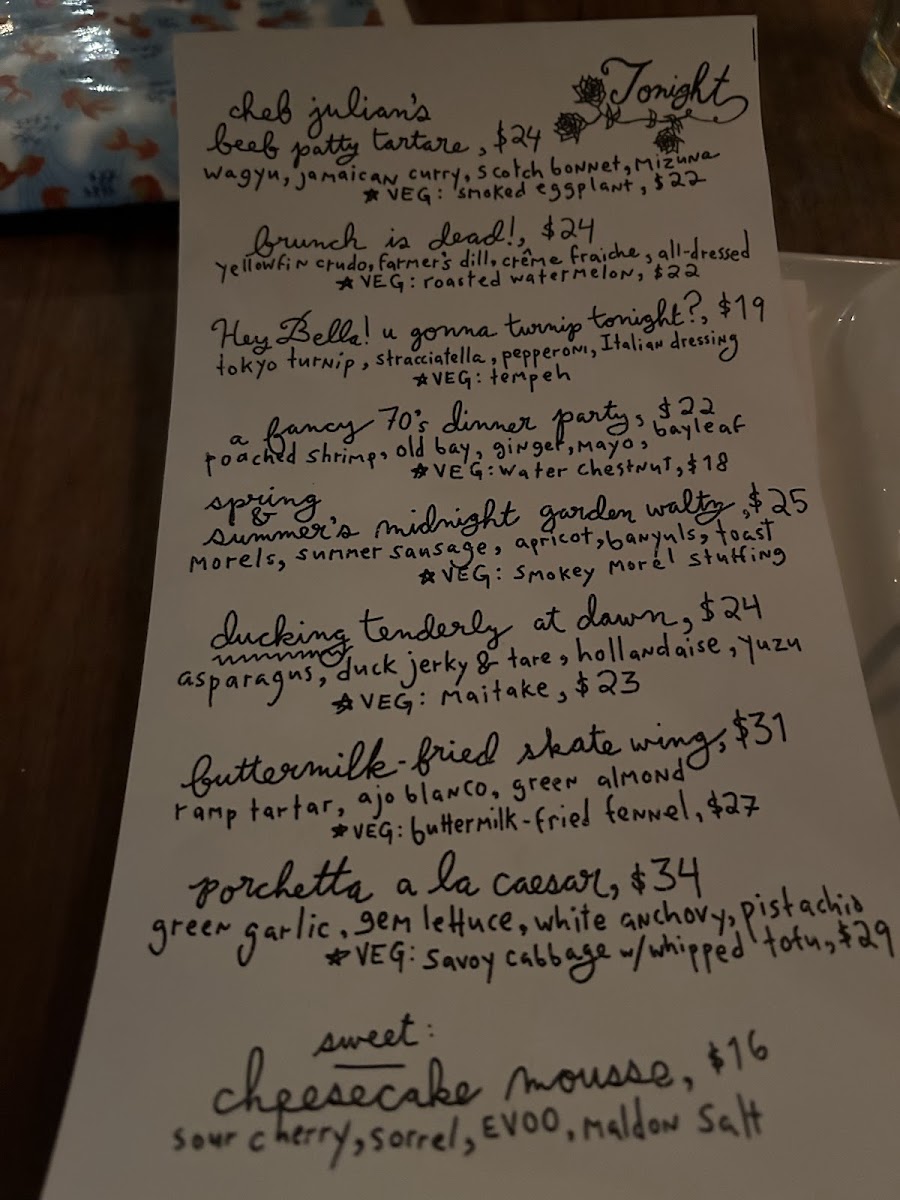 Tonight
chef julian's
beef patty tartare, $24
wagyu, jamaican curry, scotch bonnet, mizuna
★ VEG: smoked eggplant, $22
brunch is dead!, $24
yellowfin crudo, farmer's dill, crême fraiche, all-dressed
★ VEG: roasted watermelon, $22
Hey Bella! u gonna turnip tonight?, $19
tokyo turnip, stracciatella, pepperoni, Italian dressing
★ VEG: tempeh
a fancy 70's dinner party, $22
poached shrimp, old bay, ginger, mayo, bayleaf
★ VEG: water chestnut, $18
spring
&
summer's midnight garden waltz, $25
morels, summer sausage, apricot, banyuls, toast
★ VEG: smokey morel stuffing
ducking tenderly at dawn, $24
asparagus, duck jerky & tare, hollandaise, yuzu
★ VEG: maitake, $23
buttermilk-fried skate wing, $31
ramp tartar, ajo blanco, green almond
★ VEG: buttermilk-fried fennel, $27
porchetta a la caesar, $34
green garlic, gem lettuce, white anchovy, pistachio
★ VEG: savoy cabbage w/whipped tofu, $29
sweet:
cheesecake mousse, $16
sour cherry, sorrel, EVOO, maldon salt